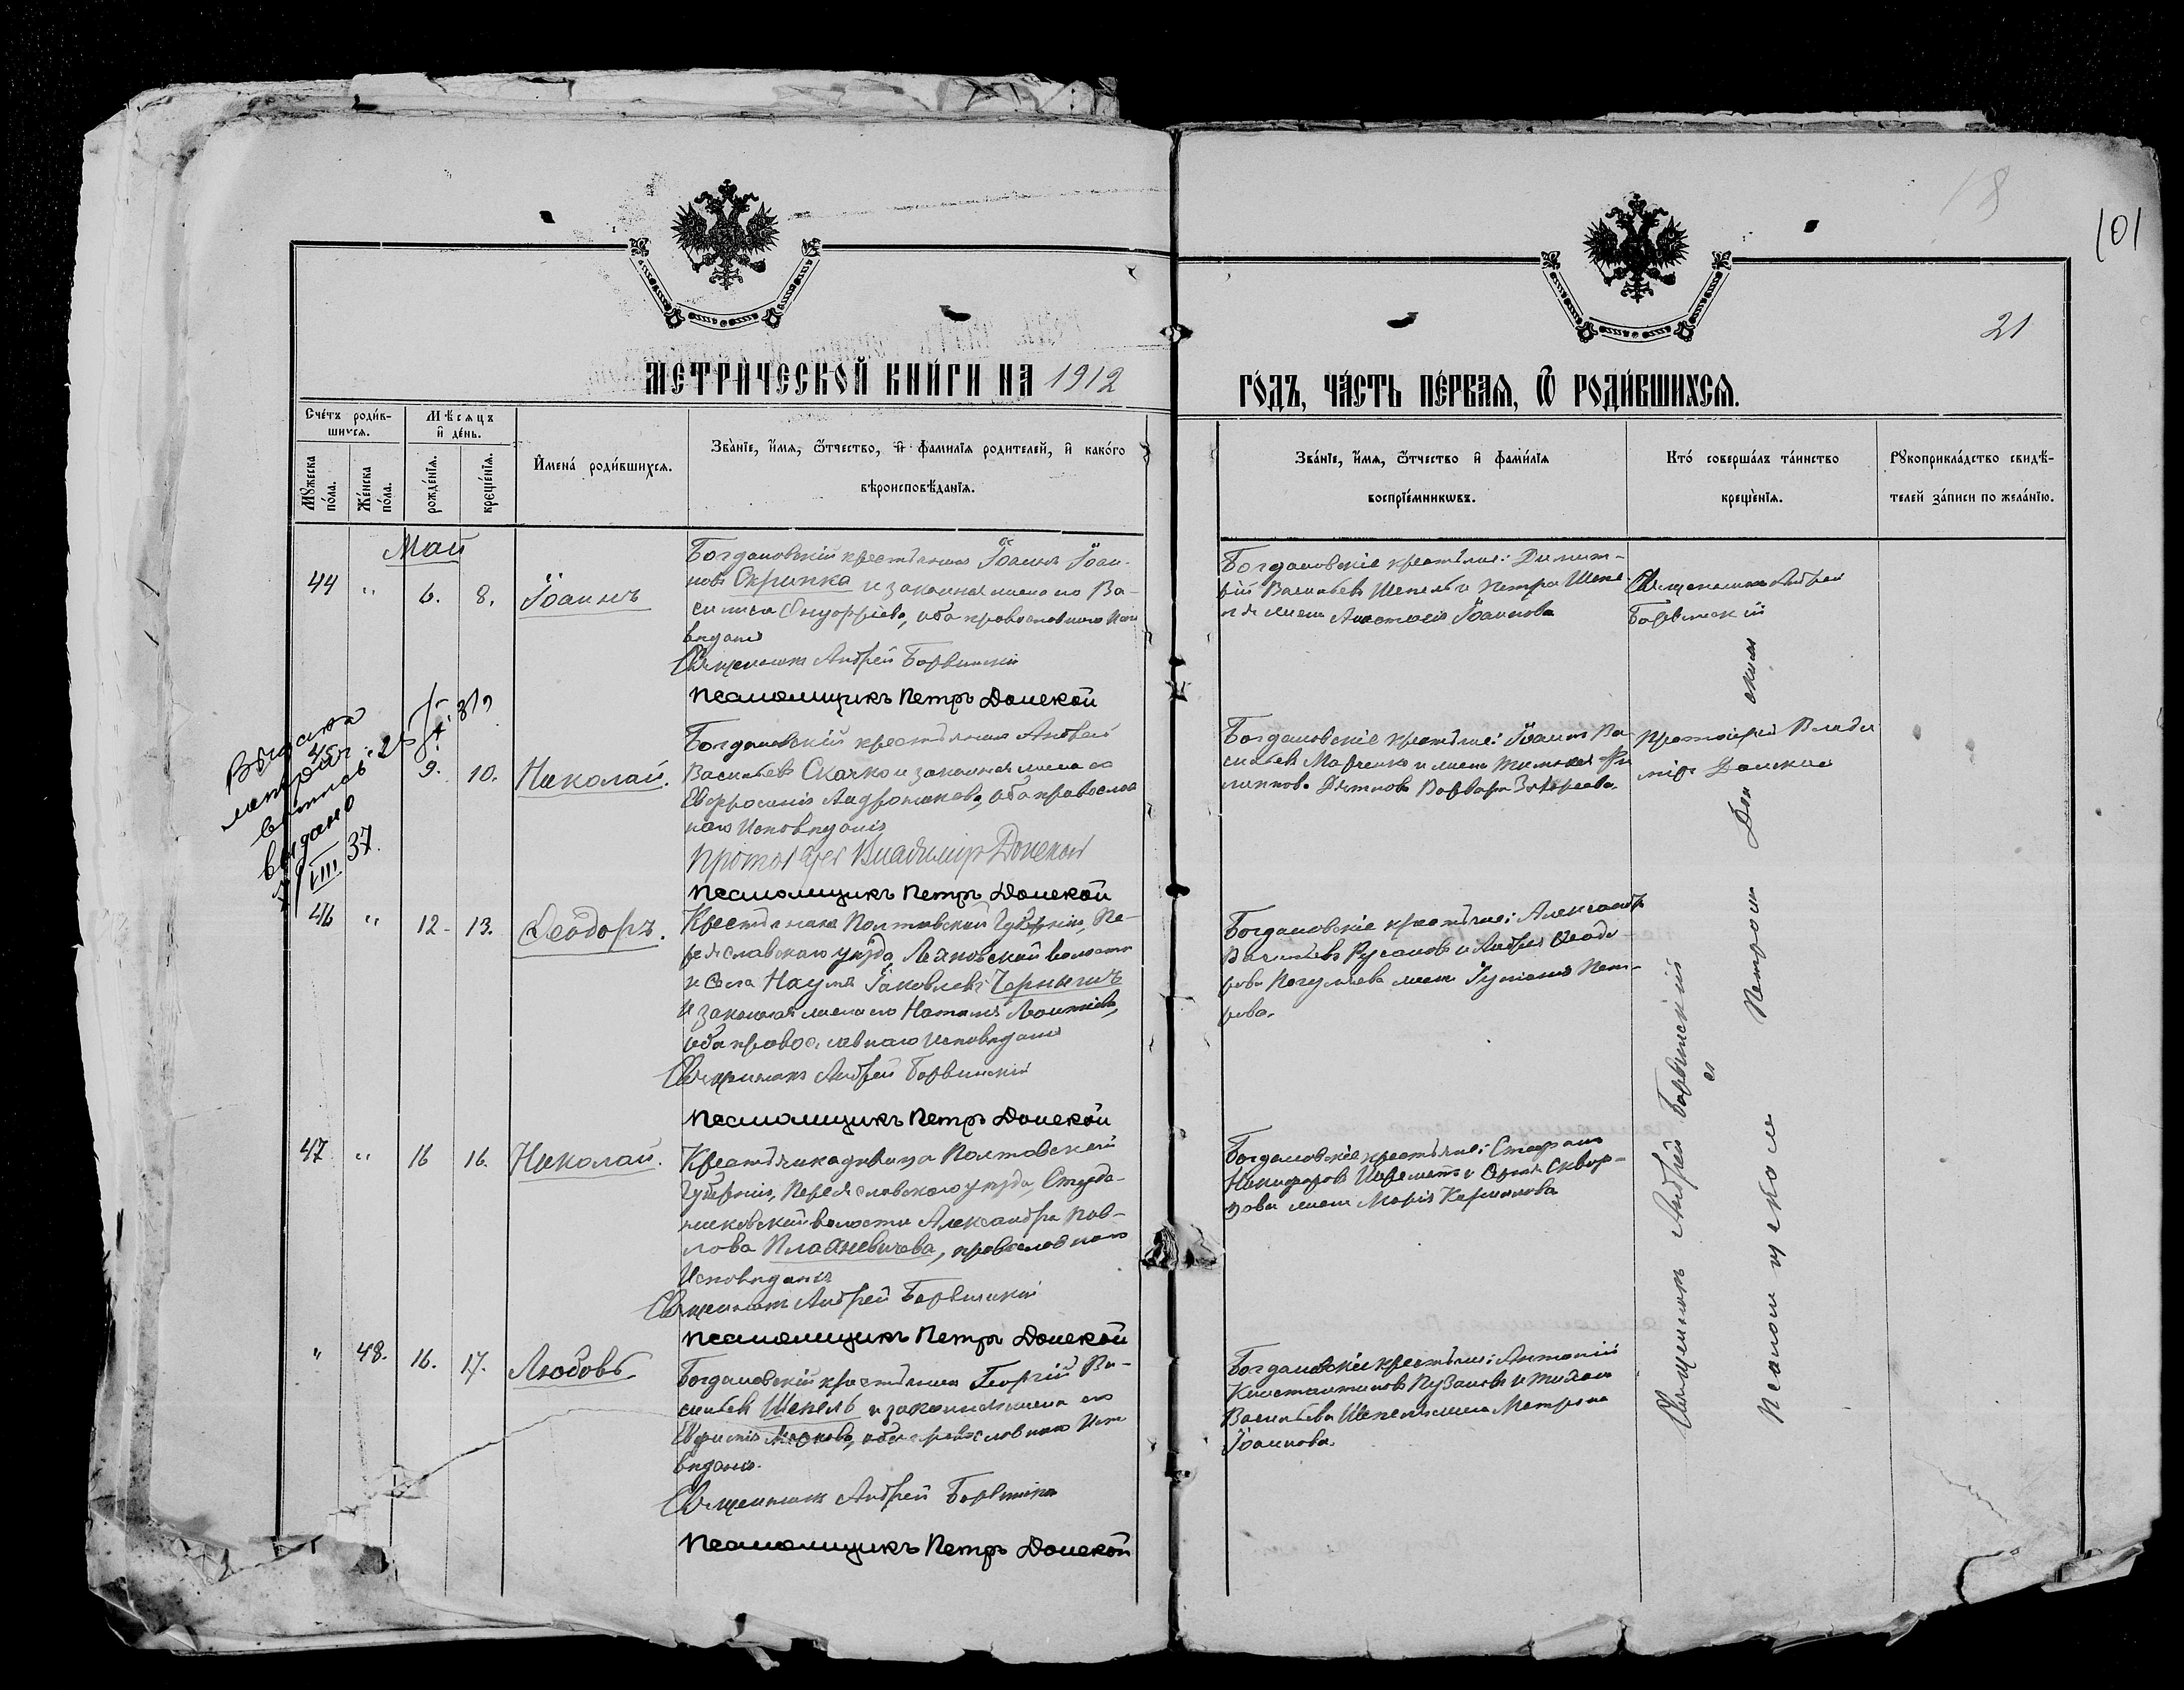 18
101
21
МЕТРИЧЕСКОЙ КНИГИ НА 1912
ГОДЪ, ЧАСТЬ ПЕРВАЯ, Ѿ РОДИВШИХСЯ.
Счетъ родив-
шихся.
Мѣсяцъ
и день.
Мужеска пола.
Женска пола.
рожденія.
крещенія.
Имена родившихся.
Званіе, имя, отчество, и фамилія родителей, и какого
вѣроисповѣданія.
Званіе, имя, отчество и фамилія
воспріемниковъ.
Кто совершалъ таинство
крещенія.
Рукоприкладство свидѣ-
телей записи по желанію.
Май
44 " 6. 8. Іоаннъ
Богдановскій крестьянинъ Іоаннъ Іоан-
новъ Скрипка и законная жена его Ва-
силиса Онуфріева, оба православнаго испо
вѣданія
Священникъ Андрей Борвинскій
Псаломщикъ Петръ Донской
Богдановскіе крестьяне: Димит-
рій Васильевъ Шепель и Петра Шепе
ля жена Анастасія Іоаннова
Священникъ Андрей
Борвинскій
45 9. 10. Николай.
Богдановскій крестьянинъ Андрей
Васильевъ Скачко и законная жена его
Евфросинія Андроникова, оба православ
наго исповѣданія
Протоіерей Владиміръ Донской
Псаломщикъ Петръ Донской
Богдановскіе крестьяне: Іоаннъ Ва
сильевъ Марченко и
Варвара
Протоіерей Влади
міръ Донской
выдано
VIII 37.
46 " 12 - 13. Ѳеодоръ.
Крестьянинъ Полтавской губерніи, Пе-
реяславскаго уѣзда, волости
и села Наумъ Іаковлевъ Чернышъ
и законная жена его Наталія Леонтіева,
оба православнаго исповѣданія
Священникъ Андрей Борвинскій
Псаломщикъ Петръ Донской
Богдановскіе крестьяне: Александръ
Васильевъ Русановъ и Андрея Ѳеодо
рова жена Іуліанія Пет-
рова.
47 " 16 16. Николай.
Крестьянка дѣвица Полтавской
губерніи, Переяславскаго уѣзда, Студе-
никовской волости Александра Пав-
лова, православнаго
исповѣданія
Священникъ Андрей Борвинскій
Псаломщикъ Петръ Донской
Богдановскіе крестьяне: Стефанъ
Никифоровъ Шереметъ и Сквор-
цова жена Марія
" 48. 16. 17. Любовь.
Богдановскій крестьянинъ Георгій Ва-
сильевъ Шепель и законная жена его
оба православнаго испо
вѣданія.
Священникъ Андрей Борвинскій
Псаломщикъ Петръ Донской
Богдановскіе крестьяне: Антоній
Константиновъ Пузановъ и
Васильева Шепеля жена Матрона
Іоаннова.
Священникъ Андрей Борвинскій
и
Псаломщикомъ Петромъ Донскимъ